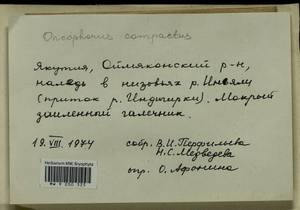 Oncophorus compactus
Якутия, Оймяконский р-н,
наледь в низовьях р. Иньяли
(приток р. Индигирки). Мокрый
заиленный галечник.
19.VIII.1974
собр. В.И. Перфильева
Н.С. Медведева
опр. О. Афонина
Herbarium MW, Bryophyta